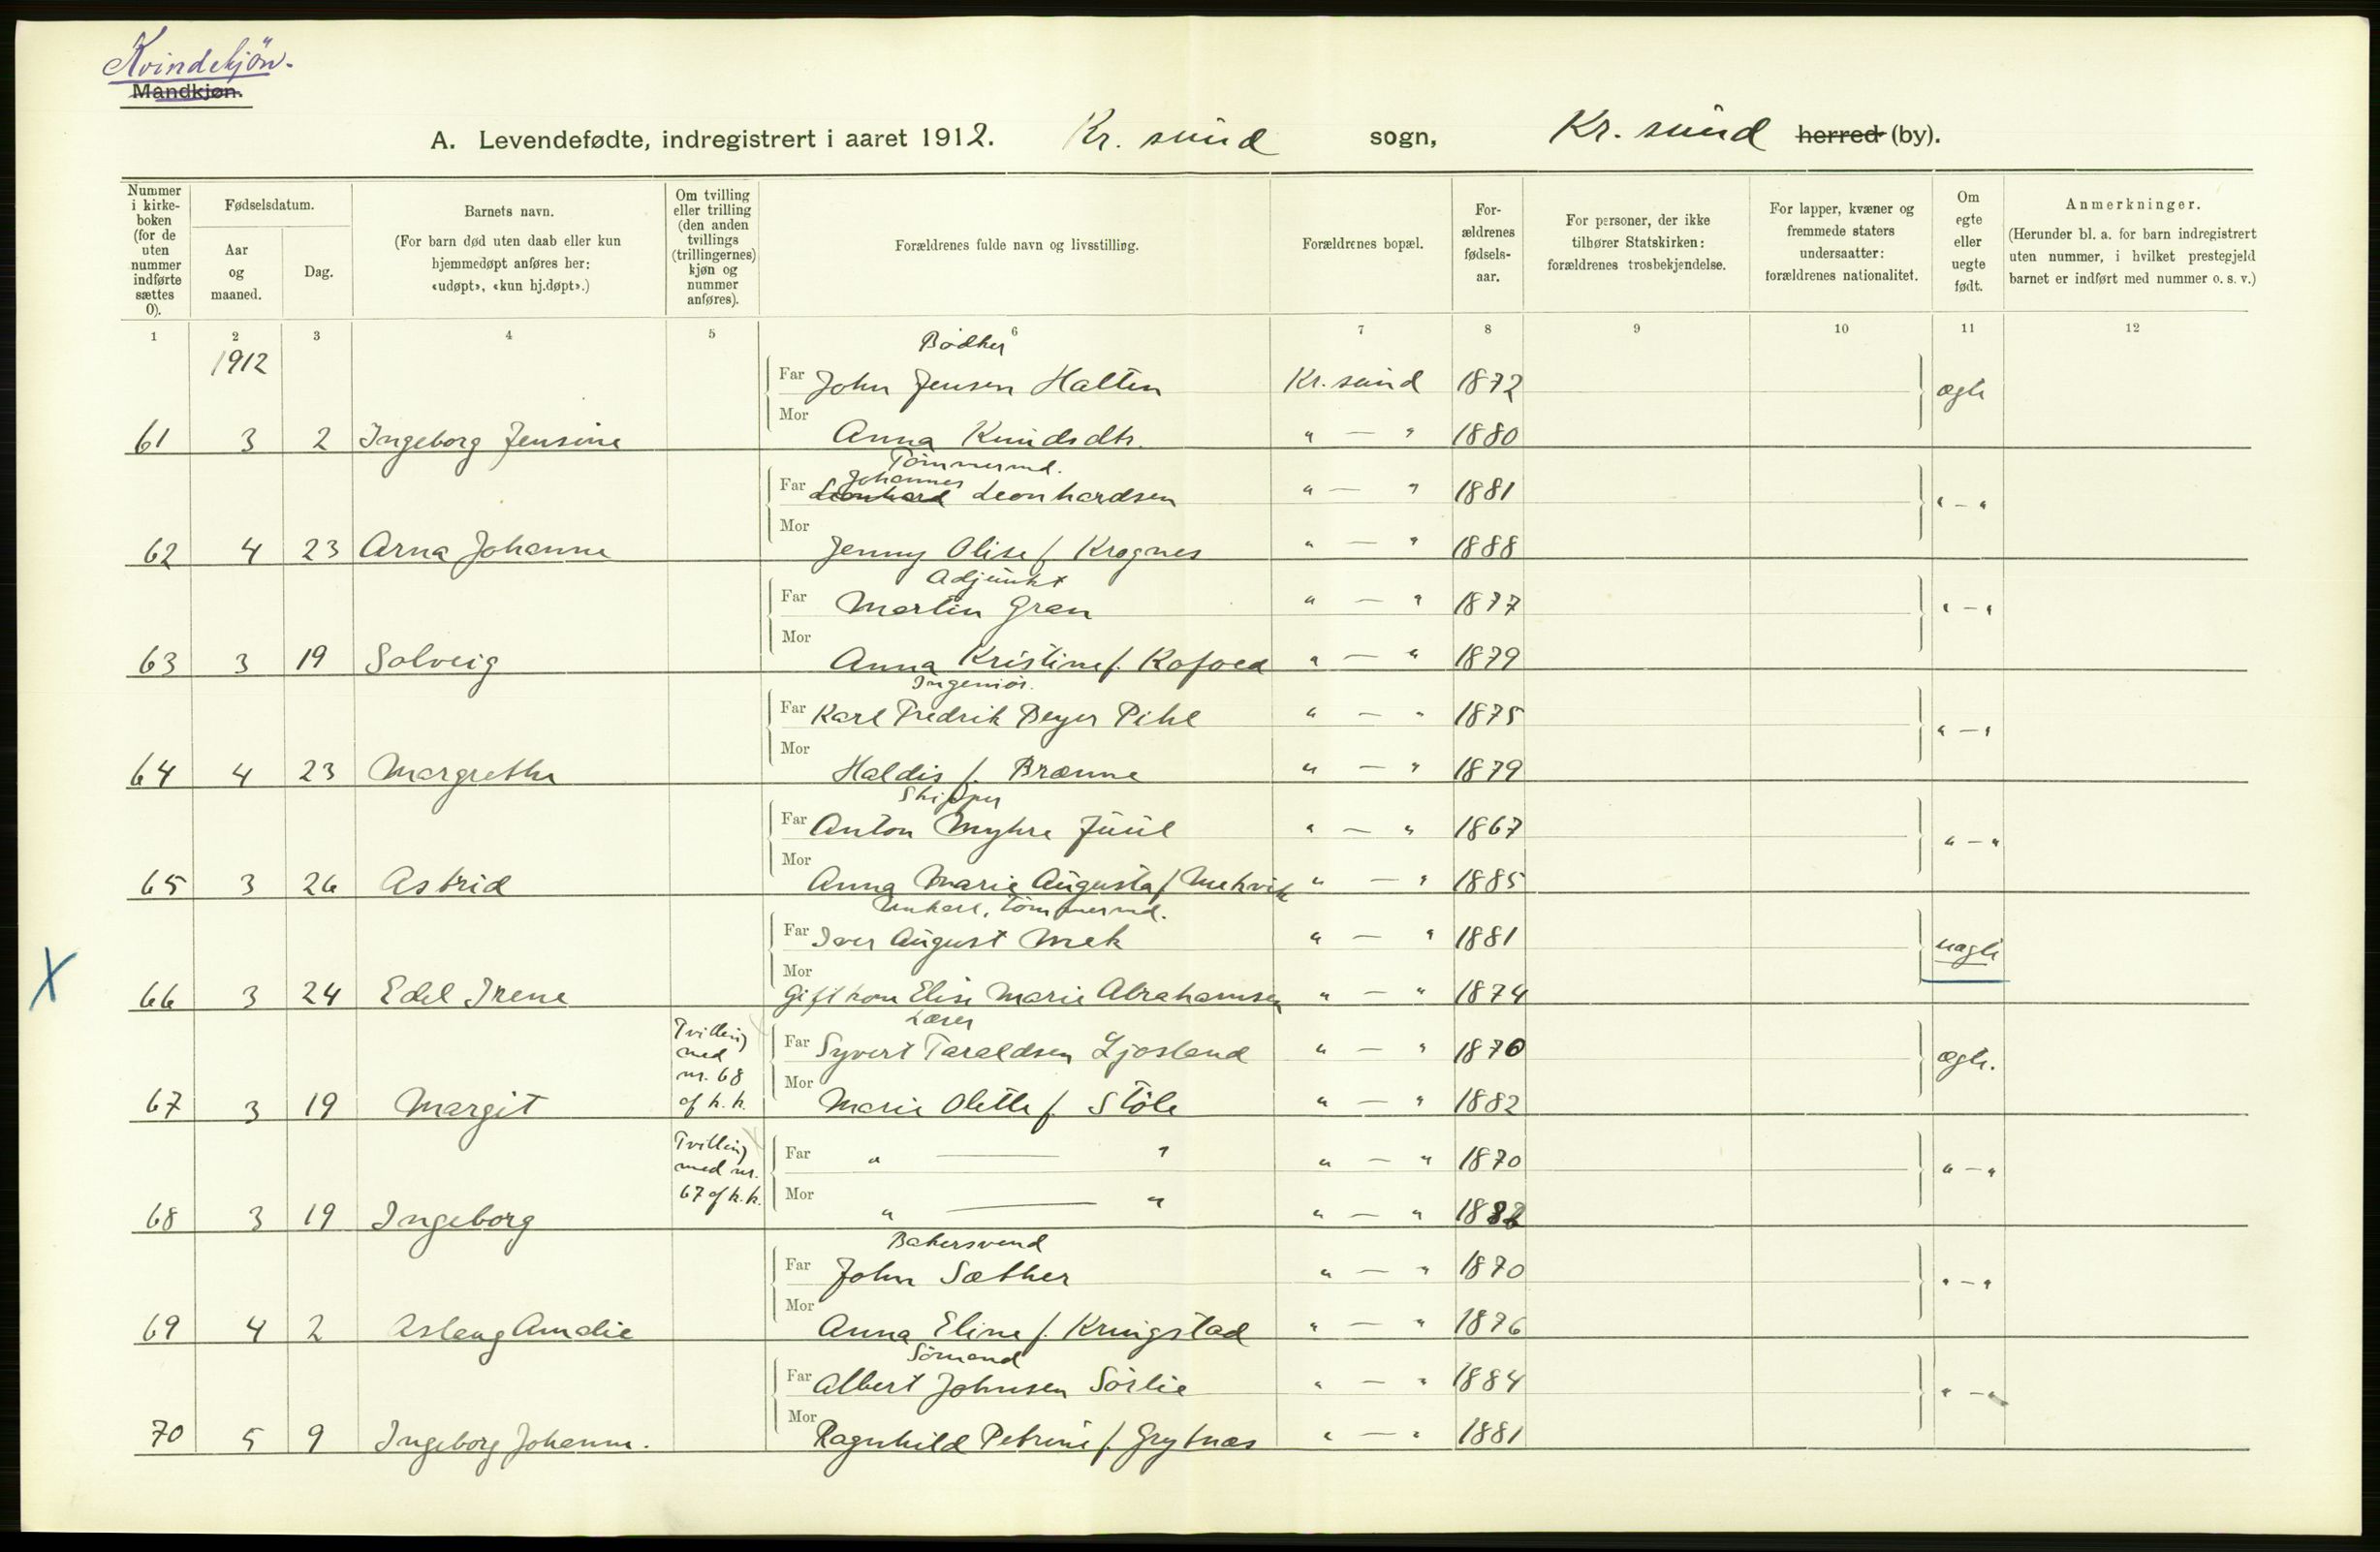 Kvindekjön.
Mandkjøn.
A. Levendefødte, indregistrert i aaret 1912. Kr. sund sogn, Kr. sund herred (by).
Nummer i kirkeboken (for de uten nummer indførte sættes 0).
Fødselsdatum.
Aar og maaned.
Dag.
Barnets navn.
(For barn død uten daab eller kun hjemmedøpt anføres her: «udøpt», «kun hj.døpt».)
Om tvilling eller trilling (den anden tvillings (trillingernes) kjøn og nummer anføres).
Forældrenes fulde navn og livsstilling.
Forældrenes bopæl.
Forældrenes fødselsaar.
For personer, der ikke tilhører Statskirken: forældrenes trosbekjendelse.
For lapper, kvæner og fremmede staters undersaatter: forældrenes nationalitet.
Om egte eller uegte født.
Anmerkninger.
(Herunder bl. a. for barn indregistrert uten nummer, i hvilket prestegjeld barnet er indført med nummer o. s. v.)
1 2 3 4 5 6 7 8 9 10 11 12
1912
Bødker
Far John Jensen Halten Kr. sund 1872 ægte
61 3 2 Ingeborg Jensine Mor Anna Knudsdtr. " — " 1880
Tömmermd.
Johannes
Far Leonhard Leonhardsen " — " 1881 " — "
62 4 23 Arna Johanne Mor Jenny Olise f. Krognes " — " 1888
Adjunkt
Far Martin Gran " — " 1877 " — "
63 3 19 Solveig Mor Anna Kristine f. Kofoed " — " 1879
Ingeniör.
Far Karl Fredrik Beyer Pihl " — " 1875 " — "
64 4 23 Margrethe Mor Haldis f. Brænne " — " 1879
Skipper
Far Anton Myhre Juul " — " 1867 " — "
65 3 26 Astrid Mor Anna Marie Augusta f. Mekvik " — " 1885
Unkarl, Tömmermd.
Far Iver August Mek " — " 1881 uægte
X 66 3 24 Edel Irene Mor Gift kone Elise Marie Abrahamsen " — " 1874
Lærer
Far Syvert Taraldsen Ljosland " — " 1870 ægte.
67 3 19 Margit Tvilling med nr. 68 af k. k. Mor Marie Olette f. Støle " — " 1882
Far " — " " — " 1870 " — "
68 3 19 Ingeborg Tvilling med nr. 67 af k. k. Mor " — " " — " 1882
Bakersvend
Far John Sæther " — " 1870 " — "
69 4 2 Aslaug Amalie Mor Anna Eline f. Kringstad " — " 1876
Sömand
Far Albert Johnsen Sörlie " — " 1884 " — "
70 5 9 Ingeborg Johanne. Mor Ragnhild Petrine f. Grytnæs " — " 1881